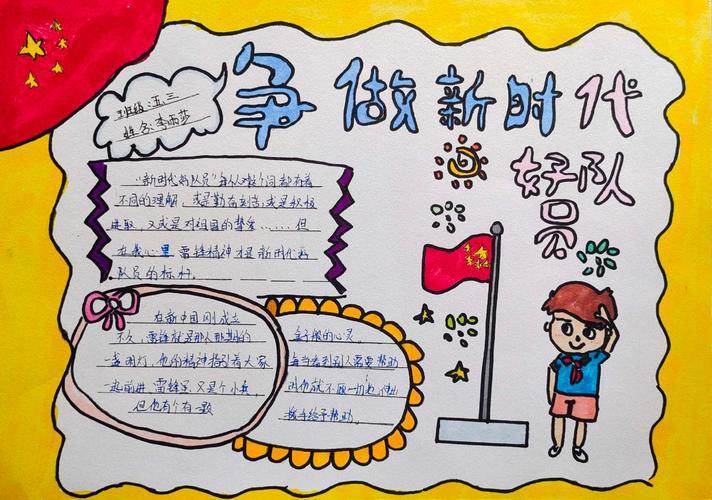 争做新时代
好队员
班级:五三
姓名:李雨莎
"新时代好队员"每个人对这个词都有着
不同的理解，或是勤奋刻苦，或是积极
进取，又或是对祖国的挚爱……但
在我心里，雷锋精神才是新时代好
队员的标杆。
在新中国刚成立
不久，雷锋就是那个那个时期的
一盏明灯，他的精神指引着大家
一起前进，雷锋虽只是个小兵，
但他有个有一颗
金子般的心灵，
每当看到别人需要帮助
时他就不顾一切地伸出
援手给予帮助。